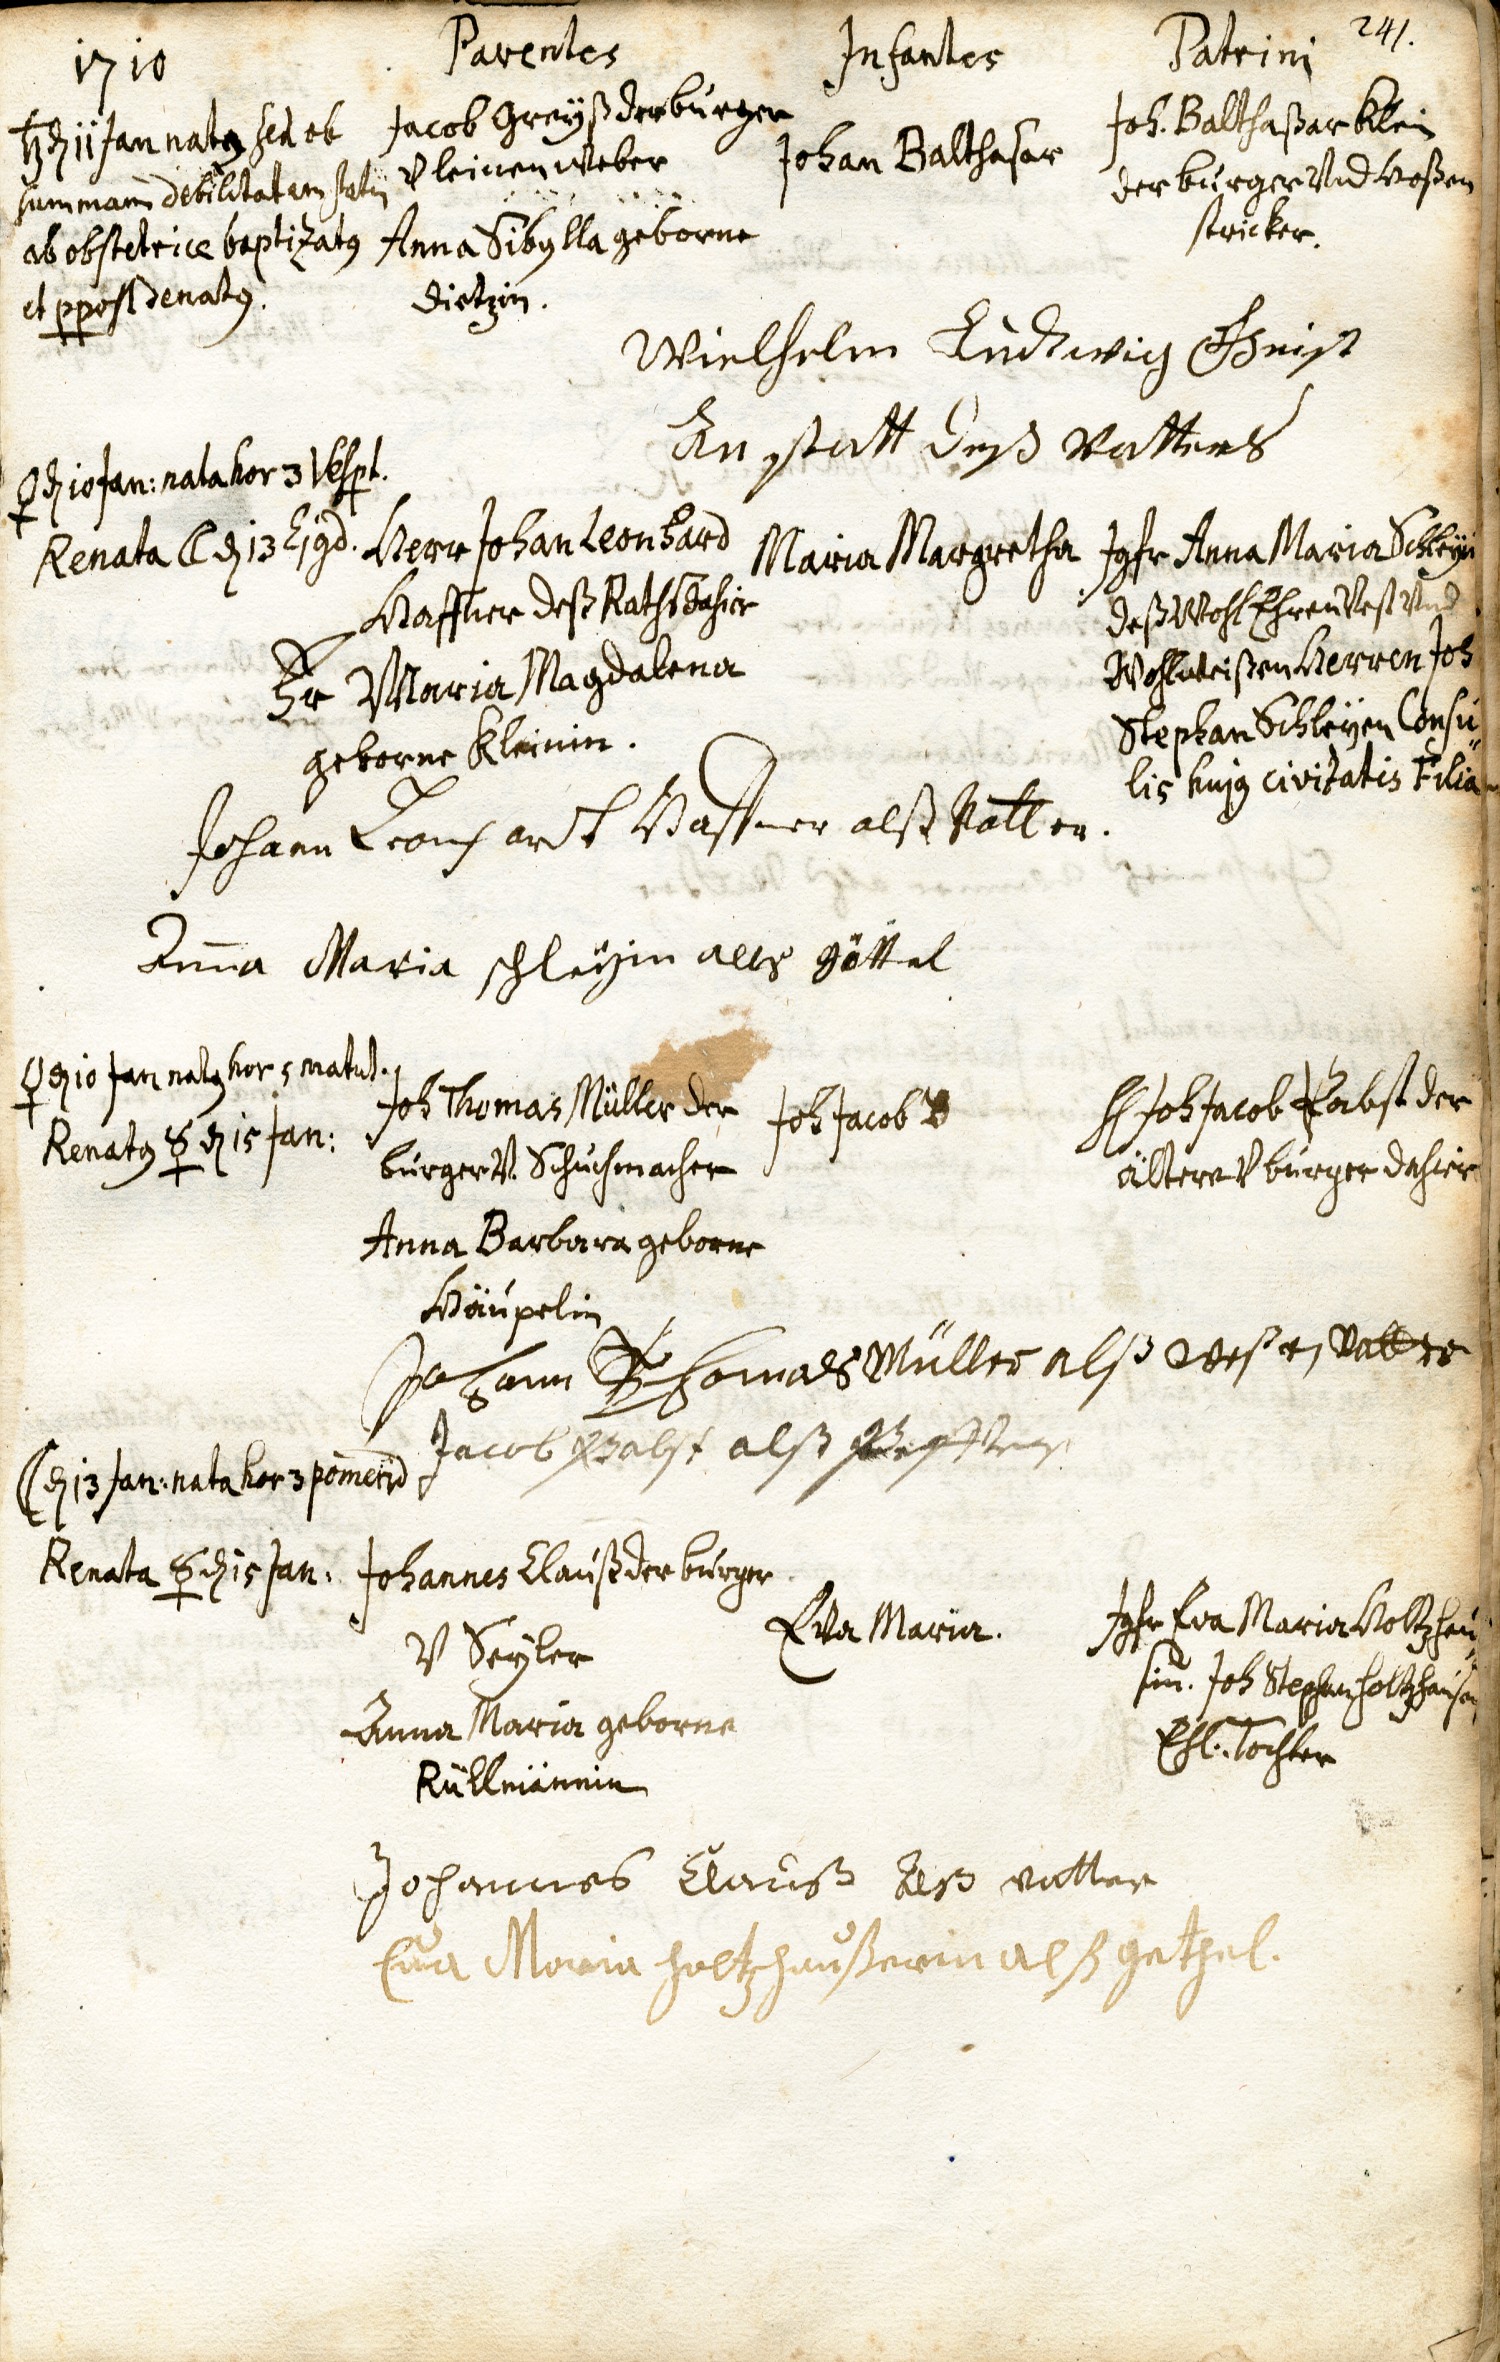 241.
1710 Parentes Infantes Patrini
♄ d 11 Jan natq sed ob
summam debilitatem statim
ab obstetrice baptizatq
et p post denatq.
Jacob Greyß der burger
V leinenweber
Anna Sibylla geborne
Dietzin.
Johan Balthasar
Joh. Balthaßar Klein
der burger Und Hoßen
stricker.
Wielhelm Ludtwig
An statt deß Vatters
♀ d 10 Jan: nata hor 3 Vespt.
Renata ☾ d 13 Ejqd.
Herr Johan Leonhard
Haffner deß Raths dahier
Fr Maria Magdalena
geborne Kleinin.
Maria Margretha
Jgfr Anna Maria Schleyin
deß Wohl Ehren Vest Und
Wohlweißen Herren Joh
Stephan Schleyen Consu
lis hujq civitatis Filia
Johann Leonhardt Haffner alß Vatter.
Anna Maria schleyin als göttel
♀ d 10 Jan natq hor 5 matut.
Renatq ☿ d 15 Jan:
Joh Thomas Müller der
burger V. Schuchmacher
Anna Barbara geborne
Häupelin
Joh Jacob
H Joh Jacob Pabst der
ältere V burger dahier
Johann Thomas Müller alß Vatter
Jacob Pabst alß
☾ d 13 Jan: nata hor 3 pomerid
Renata ☿ d 15 Jan:
Johannes Clauß der burger
V Seyler
Anna Maria geborne
Rüllmännin
Eva Maria.
Jgfr Eva Maria Holtzhau
sin. Joh Stephan Holtzhausen
Ehl. Tochter
Johannes Clauß Alß vatter
Eva Maria holtzhaußerin alß gethel.